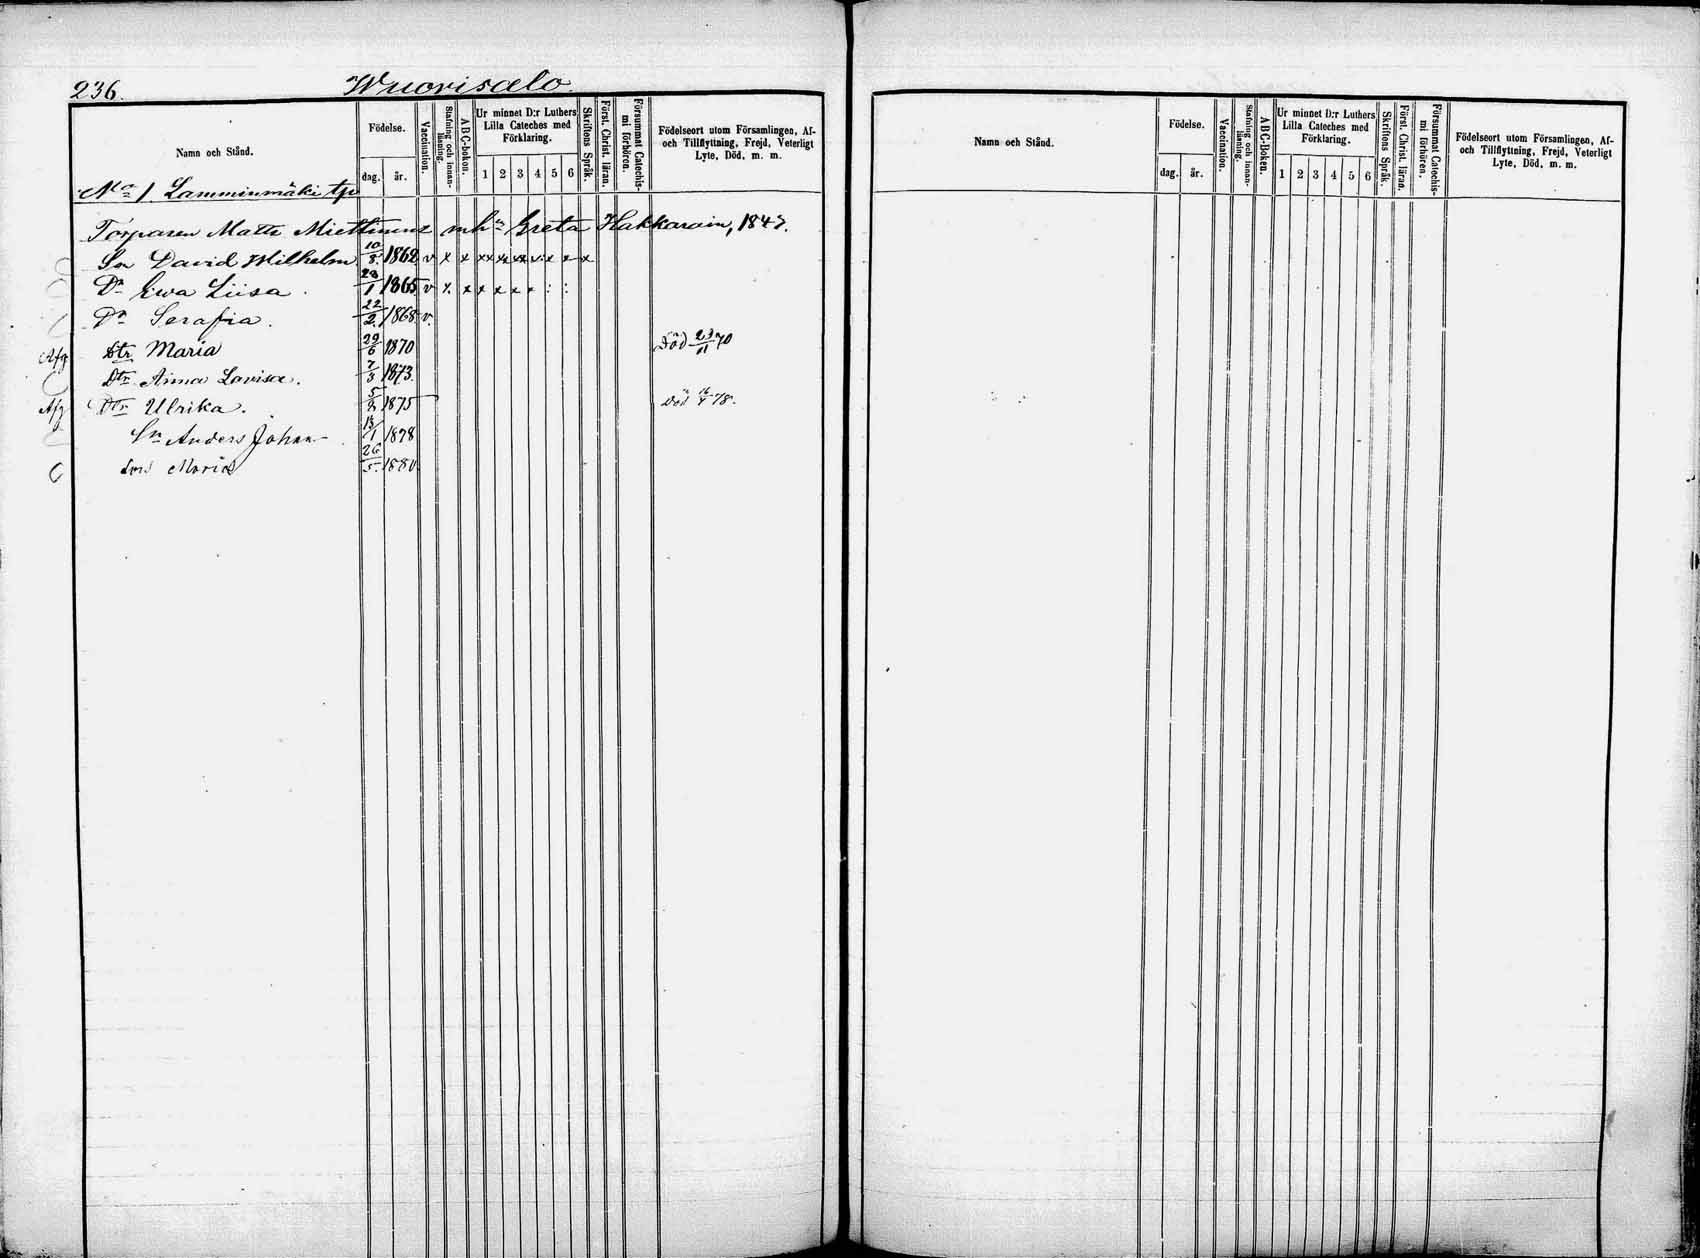 236. Wuorisalo.
Namn och Stånd.
Födelse.
dag. år.
Vaccination.
Stafning och innanläsning.
ABC-boken.
Ur minnet D:r Luthers Lilla Cateches med Förklaring.
1 2 3 4 5 6
Skriftens Språk.
Först. Christ. läran.
Försummat Catechismi förhören.
Födelseort utom Församlingen, Af- och Tillflyttning, Frejd, Veterligt Lyte, Död, m. m.
No 1 Lamminmäki tp
Torparen Matts Miettinens mhn Greta Hakkarain, 1847.
Sn David Wilhelm 10/8. 1862 v x x xx xx xx x x x
Dr Ewa Liisa. 1 1865 v x x x x x x : :
Dr Serafia. 22/2. 1868 v.
Afg Dtr Maria 29/6 1870 Död 23/11 70
Dtr Anna Lovisa. 7/3 1873.
Afg Dtr Ulrika. 1875 Död 78.
Sn Anders Johan 13/1 1878
Maria 26/5. 1880
Namn och Stånd.
Födelse.
dag. år.
Vaccination.
Stafning och innanläsning.
ABC-Boken.
Ur minnet D:r Luthers Lilla Cateches med Förklaring.
1 2 3 4 5 6
Skriftens Språk.
Först. Christ. läran.
Försummat Catechismi förhören.
Födelseort utom Församlingen, Af- och Tillflyttning, Frejd, Veterligt Lyte, Död, m. m.